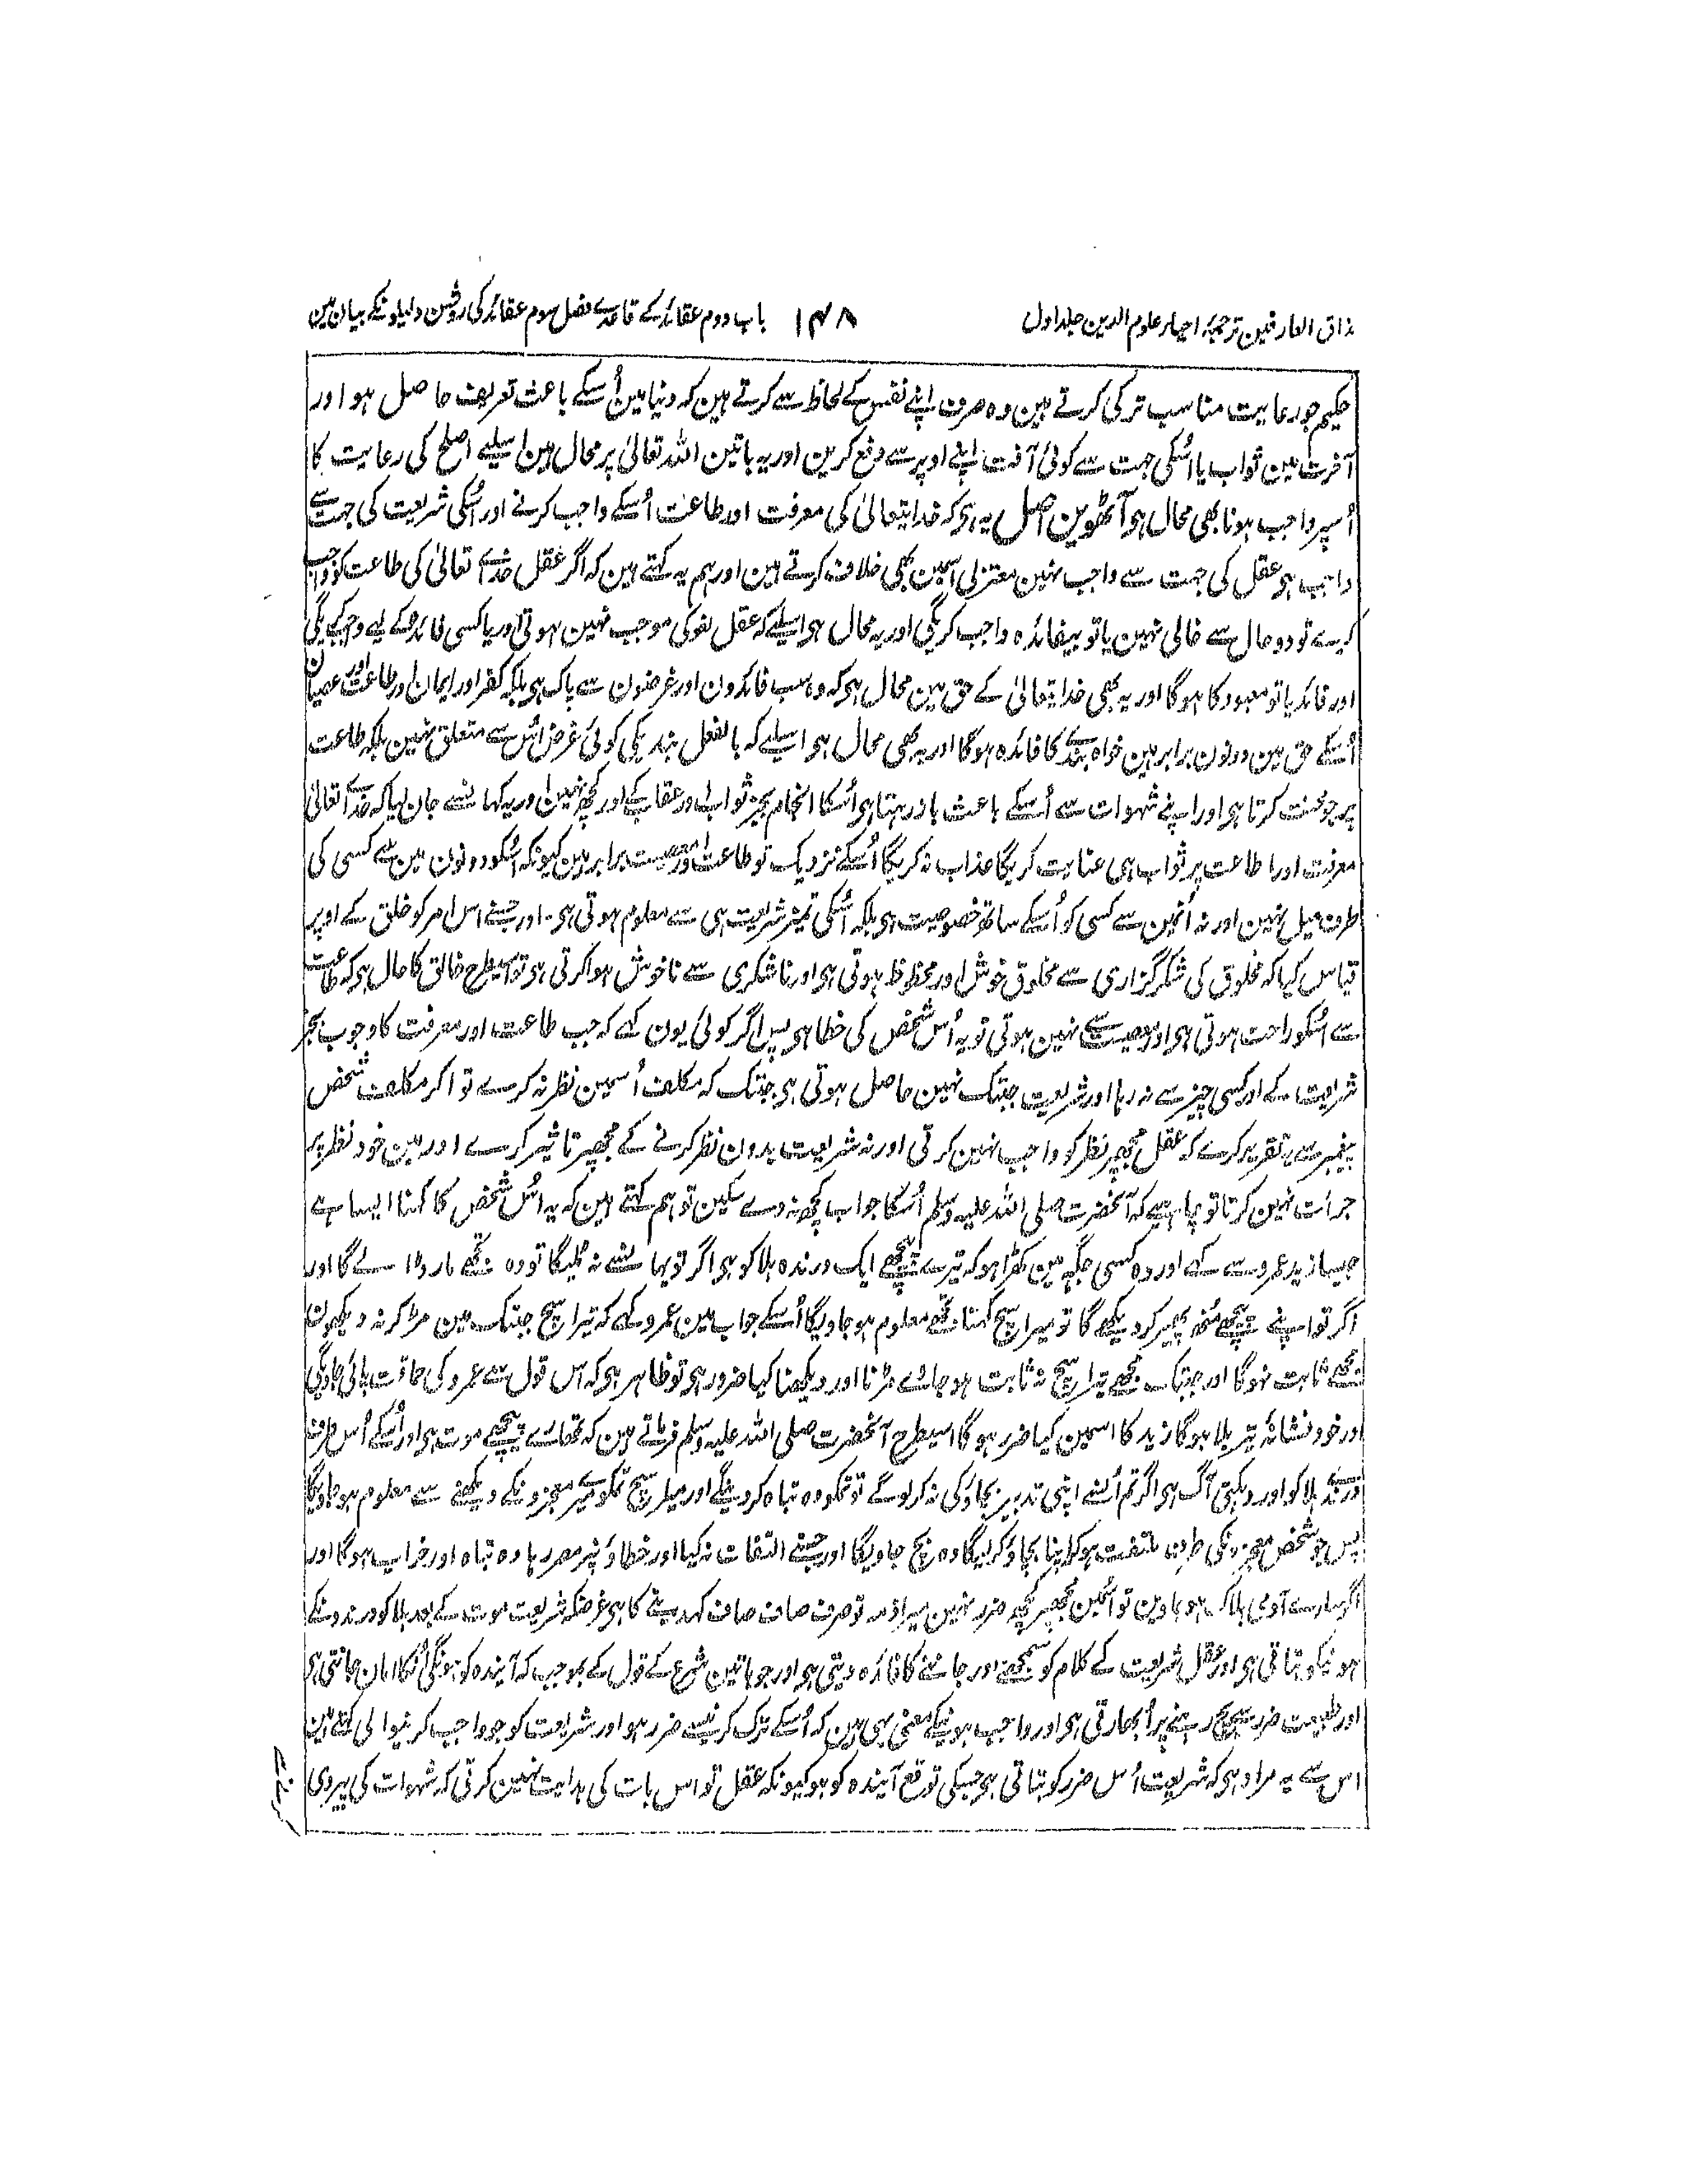 مذاق العارفین ترجمۂ احیاء علوم الدین جلد اول
۱۴۸
باب دوم عقائد کے قاعدے فصل سوم عقائد کی روشن دلیلونکے بیان مین
حکیم جو رعایت مناسب ترکی کرتے ہین وہ صرف اپنے نفس کے لحاظ سے کرتے ہین کہ دنیا مین اُسکے باعث تعریف حاصل ہو اور
آخرت مین ثواب یا اُسکی جہت سے کوئی آفت اپنے اوپر سے دفع کرین اور یہ باتین اللہ تعالیٰ پر محال ہین اسلیے اصلح کی رعایت کا
اُسپر واجب ہونا بھی محال ہی آٹھوین اصل یہ ہی کہ خدایتعالیٰ کی معرفت اور طاعت اُسکے واجب کرنے اور اُسکی شریعت کی جہت سے
واجب ہی عقل کی جہت سے واجب نہین معتزلی اسمین بھی خلاف کرتے ہین اور ہم یہ کہتے ہین کہ اگر عقل خداے تعالیٰ کی طاعت کو واجب
کرے تو دو حال سے خالی نہین یا تو بیفائدہ واجب کریگی اور یہ محال ہی اسلیے کہ عقل لغو کی موجب نہین ہوتی اور یا کسی فائدہ کے لیے واجب کریگی
اور فائدہ یا تو معبود کا ہوگا اور یہ بھی خدایتعالیٰ کے حق مین محال ہی کہ وہ سب فائدون اور غرضون سے پاک ہی بلکہ کفر اور ایمان اور طاعت اور عصیان
اُسکے حق مین دونون برابر ہین خواہ بندے کا فائدہ ہوگا اور یہ بھی محال ہی اسلیے کہ بالفعل بندیکی کوئی غرض اُس سے متعلق نہین بلکہ طاعت
پر جو محنت کرتا ہی اور اپنے شہوات سے اُسکے باعث باز رہتا ہی اُسکا انجام بجز ثواب اور عقاب کے اور کچھ نہین اور یہ کہانسے جان لیا کہ خداے تعالیٰ
معرفت اور اطاعت پر ثواب ہی عنایت کریگا عذاب نہ کریگا اُسکے نزدیک تو طاعت اور معصیت برابر ہین کیونکہ اُسکو دونون مین سے کسی کی
طرف میل نہین اور نہ اُنمین سے کسی کو اُسکے ساتھ خصوصیت ہی بلکہ اُسکی تمیز شریعت ہی سے معلوم ہوتی ہی۔ اور جسنے اس امر کو خلق کے اوپر
قیاس کیا کہ مخلوق کی شکر گزاری سے مخلوق خوش اور محظوظ ہوتی ہی اور ناشکری سے ناخوش ہوا کرتی ہی تو اسیطرح خالق کا حال ہی کہ طاعت
سے اُسکو راحت ہوتی ہی اور معصیت سے نہین ہوتی تو یہ اُس شخص کی خطا ہی پس اگر کوئی یون کہے کہ جب طاعت اور معرفت کا وجوب بجز
شریعت کے اور کسی چیز سے نہ رہا اور شریعت جبتک نہین حاصل ہوتی ہی جبتک کہ مکلف اُسمین نظر نہ کرے تو اگر مکلف شخص
پیغمبر سے یہ تقریر کرے کہ عقل مجھپر نظر کو واجب نہین کرتی اور نہ شریعت بدون نظر کرنے کے مجھپر تاثیر کرے اور مین خود نظر پر
جرات نہین کرتا تو چاہیے کہ آنحضرت صلی اللہ علیہ وسلم اُسکا جواب کچھ نہ دے سکین تو ہم کہتے ہین کہ یہ اُس شخص کا کہنا ایسا ہے
جیسا زید عمرو سے کہے اور وہ کسی جگہ مین کھڑا ہو کہ تیرے پیچھے ایک درندہ ہلاکو ہی اگر تو یہانسے نہ ٹلیگا تو وہ تجھے مار ڈالے گا اور
اگر تو اپنے پیچھے مُنھ پھیر کر دیکھے گا تو میرا سچ کہنا تجھے معلوم ہو جاویگا اُسکے جواب مین عمرو کہے کہ تیرا سچ جبتک مین مڑ کر نہ دیکھون
مجھے ثابت نہوگا اور جبتک مجھے تیرا سچ نہ ثابت ہو جائے مڑنا اور دیکھنا کیا ضرور ہی تو ظاہر ہی کہ اس قول سے عمرو کی حماقت پائی جاویگی
اور خود نشانۂ تیر بلا ہوگا زید کا اسمین کیا ضرر ہوگا اسیطرح آنحضرت صلی اللہ علیہ وسلم فرماتے ہین کہ تمھارے پیچھے موت ہی اور اُسکے اُس طرف
درندے ہلاکو اور دہکتی آگ ہی اگر تم اُنسے اپنی تدبیر بچاؤ کی نہ کر لوگے تو تمکو وہ تباہ کر دینگے اور میرا سچ تمکو میرے معجزونکے دیکھنے سے معلوم ہو جاویگا
پس جو شخص معجزونکی طرف ملتفت ہو کر اپنا بچاؤ کر لیگا وہ بچ جاویگا اور جسنے التفات نہ کیا اور خطاؤں پر مصر رہا وہ تباہ اور خراب ہوگا اور
اگر سارے آدمی ہلاک ہو جاوین تو اُسمین مجھپر کچھ ضرر نہین میرا ذمہ تو صرف صاف صاف کہدینے کا ہی غرضکہ شریعت موت کے بعد ہلاکو درندونکے
ہونیکو بتاتی ہی اور عقل شریعت کے کلام کو سمجھنے اور جاننے کا فائدہ دیتی ہی اور جو باتین شرع کے قول کے بموجب کہ آیندہ کو ہونگی اُنکا امکان جانتی ہی
اور طبیعت ضرر سے بچے رہنے پر اُبھارتی ہی اور واجب ہونیکے معنی یہی ہین کہ اُسکے ترک کرنیسے ضرر ہو اور شریعت کو جو واجب کرنیوالی کہتے ہین
اس سے یہ مراد ہی کہ شریعت اُس ضرر کو بتاتی ہی جسکی توقع آیندہ کو ہو کیونکہ عقل تو اس بات کی ہدایت نہین کرتی کہ شہوات کی پیروی